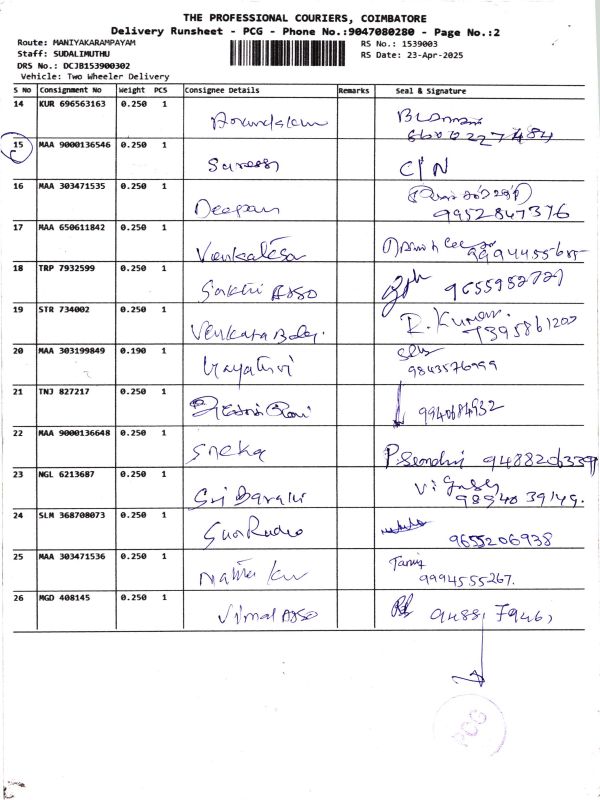 THE PROFESSIONAL COURIERS, COIMBATORE
Delivery Runsheet - PCG - Phone No.:9047080280 - Page No.:2
Route: MANIYAKARAMPAYAM
RS No.: 1539003
Staff: SUDALIMUTHU
RS Date: 23-Apr-2025
DRS No.: DCJB153900302
Vehicle: Two Wheeler Delivery
S No Consignment No Weight PCS Consignee Details Remarks Seal & Signature
14 KUR 696563163 0.250 1
15 MAA 9000136546 0.250 1 Suresh C/N
16 MAA 303471535 0.250 1 Deepan 9952847376
17 MAA 650611842 0.250 1 Venkatesa
18 TRP 7932599 0.250 1 Sakthi Asso 9655952729
19 STR 734002 0.250 1 Venkata Balaji R. Kumar 7395861200
20 MAA 303199849 0.190 1 Gayathri
21 TNJ 827217 0.250 1 9940684932
22 MAA 9000136648 0.250 1 Sneka
23 NGL 6213687 0.250 1 Sri Barani
24 SLM 368708073 0.250 1 9655206938
25 MAA 303471536 0.250 1 9994555267.
26 MGD 408145 0.250 1 Vimal Asso
PCG